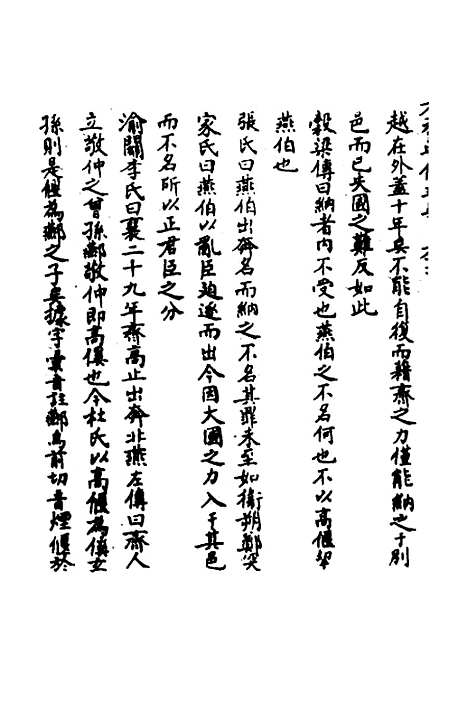 越在外蓋十年矣不能自復而藉齊之力僅能納之于別
邑而已失國之難反如此
穀梁傳曰納者內不受也燕伯之不名何也不以高偃挈
燕伯也
張氏曰燕伯出奔名而納之不名其罪未至如衛朔鄭突
家氏曰燕伯以亂臣廹逐而出今因大國之力入于其邑
而不名所以正君臣之分
渝關李氏曰襄二十九年齊高止出奔北燕左傳曰齊人
立敬仲之曾孫酀敬仲即高傒也今杜氏以高偃為傒玄
孫則是偃為酀之子矣據字彙音註酀烏前切音煙偃於